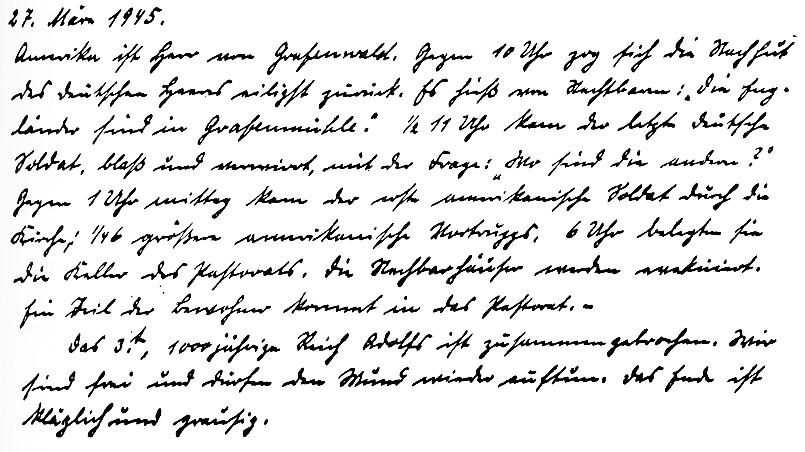 27. März 1945.
Amerika ist Herr von Grafenwald. Gegen 10 Uhr zog sich die Nachhut
des deutschen Heeres eiligst zurück. Es hieß von Nachbarn: „Die Eng-
länder sind in Grafenmühle." ½ 11 Uhr kam der letzte deutsche
Soldat, blaß und verwirrt, mit der Frage: „Wo sind die andern?"
Gegen 1 Uhr mittag kam der erste amerikanische Soldat durch die
Kirche; ¼ 6 größere amerikanische Vortrupps. 6 Uhr belegten sie
die Keller des Pastorats. Die Nachbarhäuser werden evakuiert.
Ein Teil der Bewohner kommt in das Pastorat. –
Das 3.t, 1000 jährige Reich Adolfs ist zusammengebrochen. Wir
sind frei und dürfen den Mund wieder auftun. Das Ende ist
kläglich und grausig.